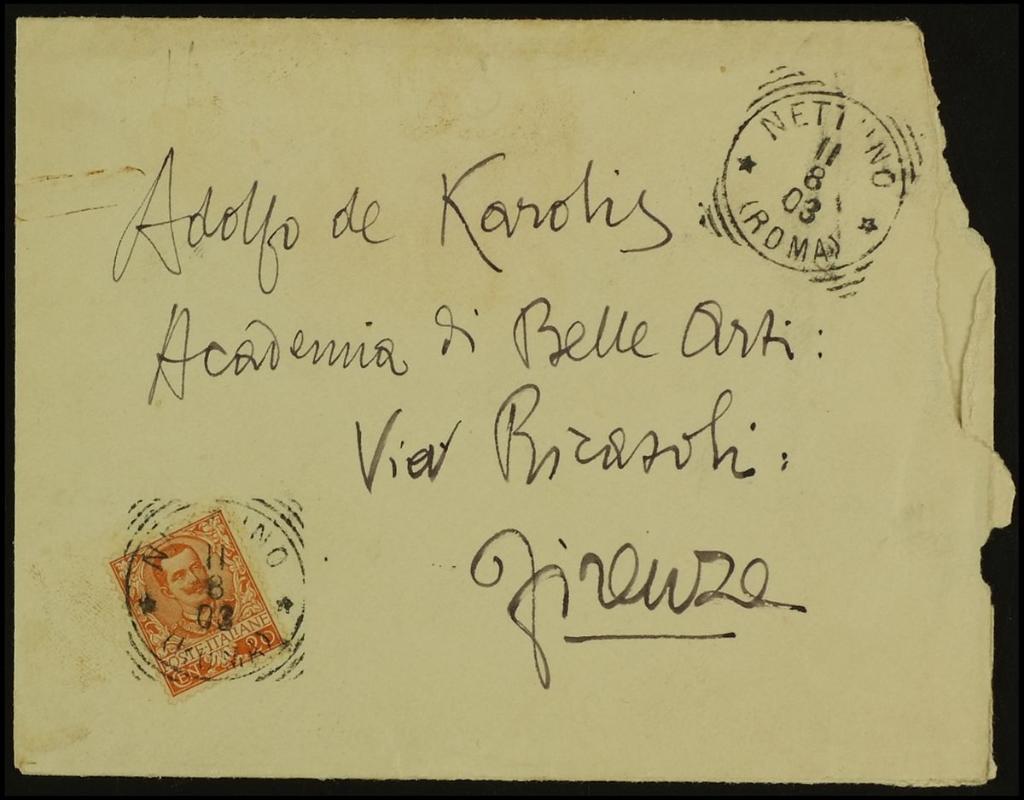 NETTUNO
11
8
03
(ROMA)
Adolfo de Karolis
Academia di Belle Arti:
Via Ricasoli:
Firenze
NETTUNO
11
8
03
POSTE ITALIANE
CENT. 20